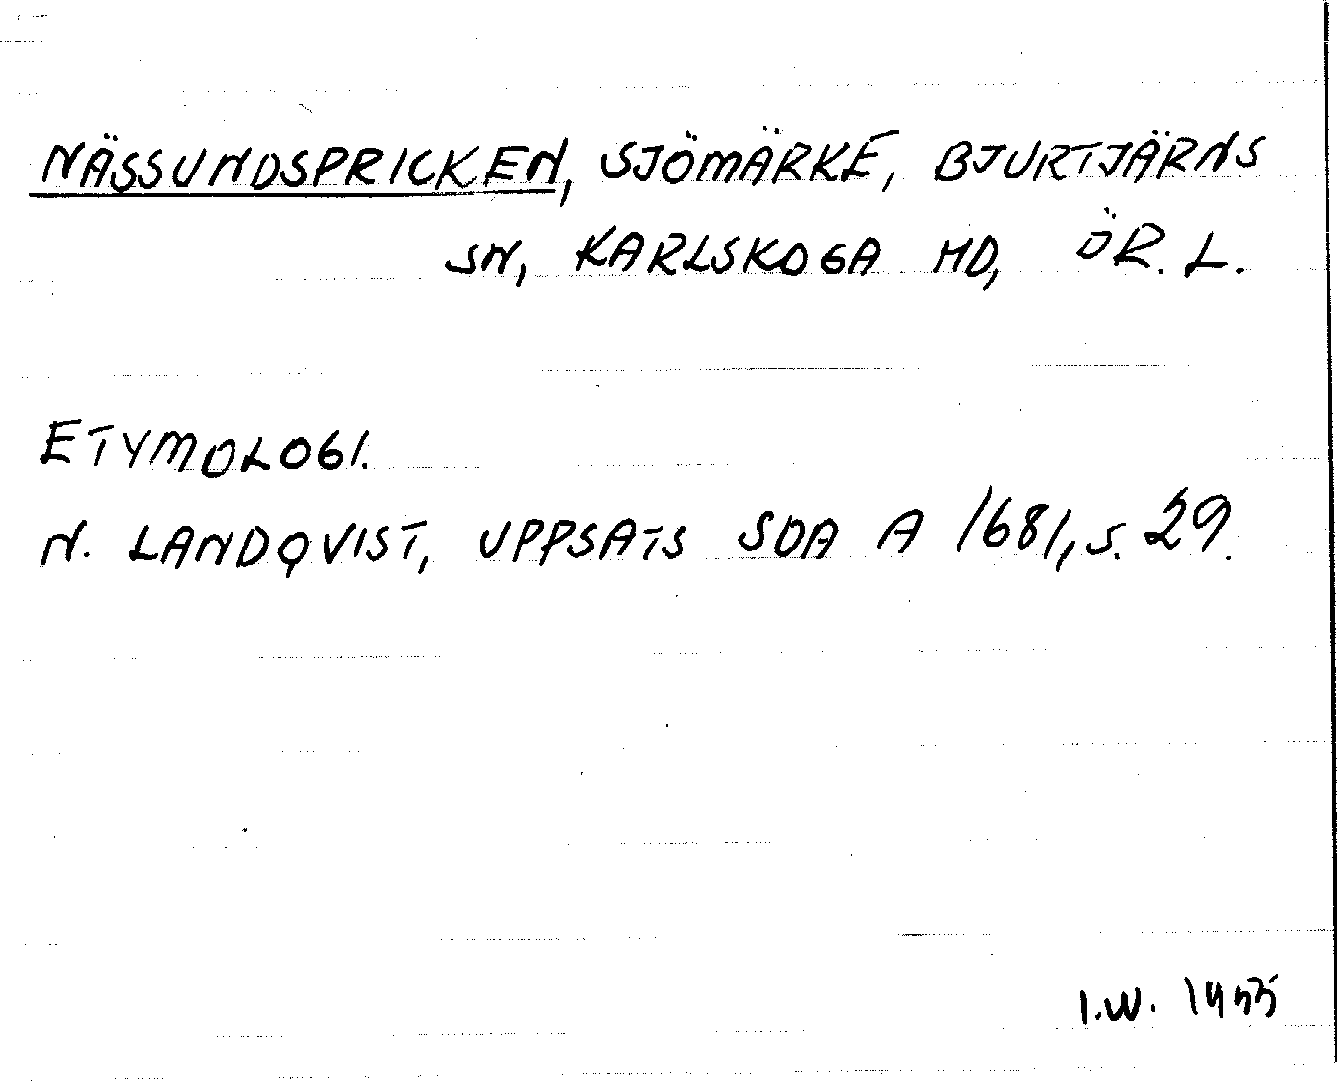 NÄSSUNDSPRICKEN, SJÖMÄRKE, BJURTJÄRNS
SN, KARLSKOGA HD, ÖR. L.
ETYMOLOGI.
N. LANDQVIST, UPPSATS SOA A 1681, S. 29.
I.W. 1955